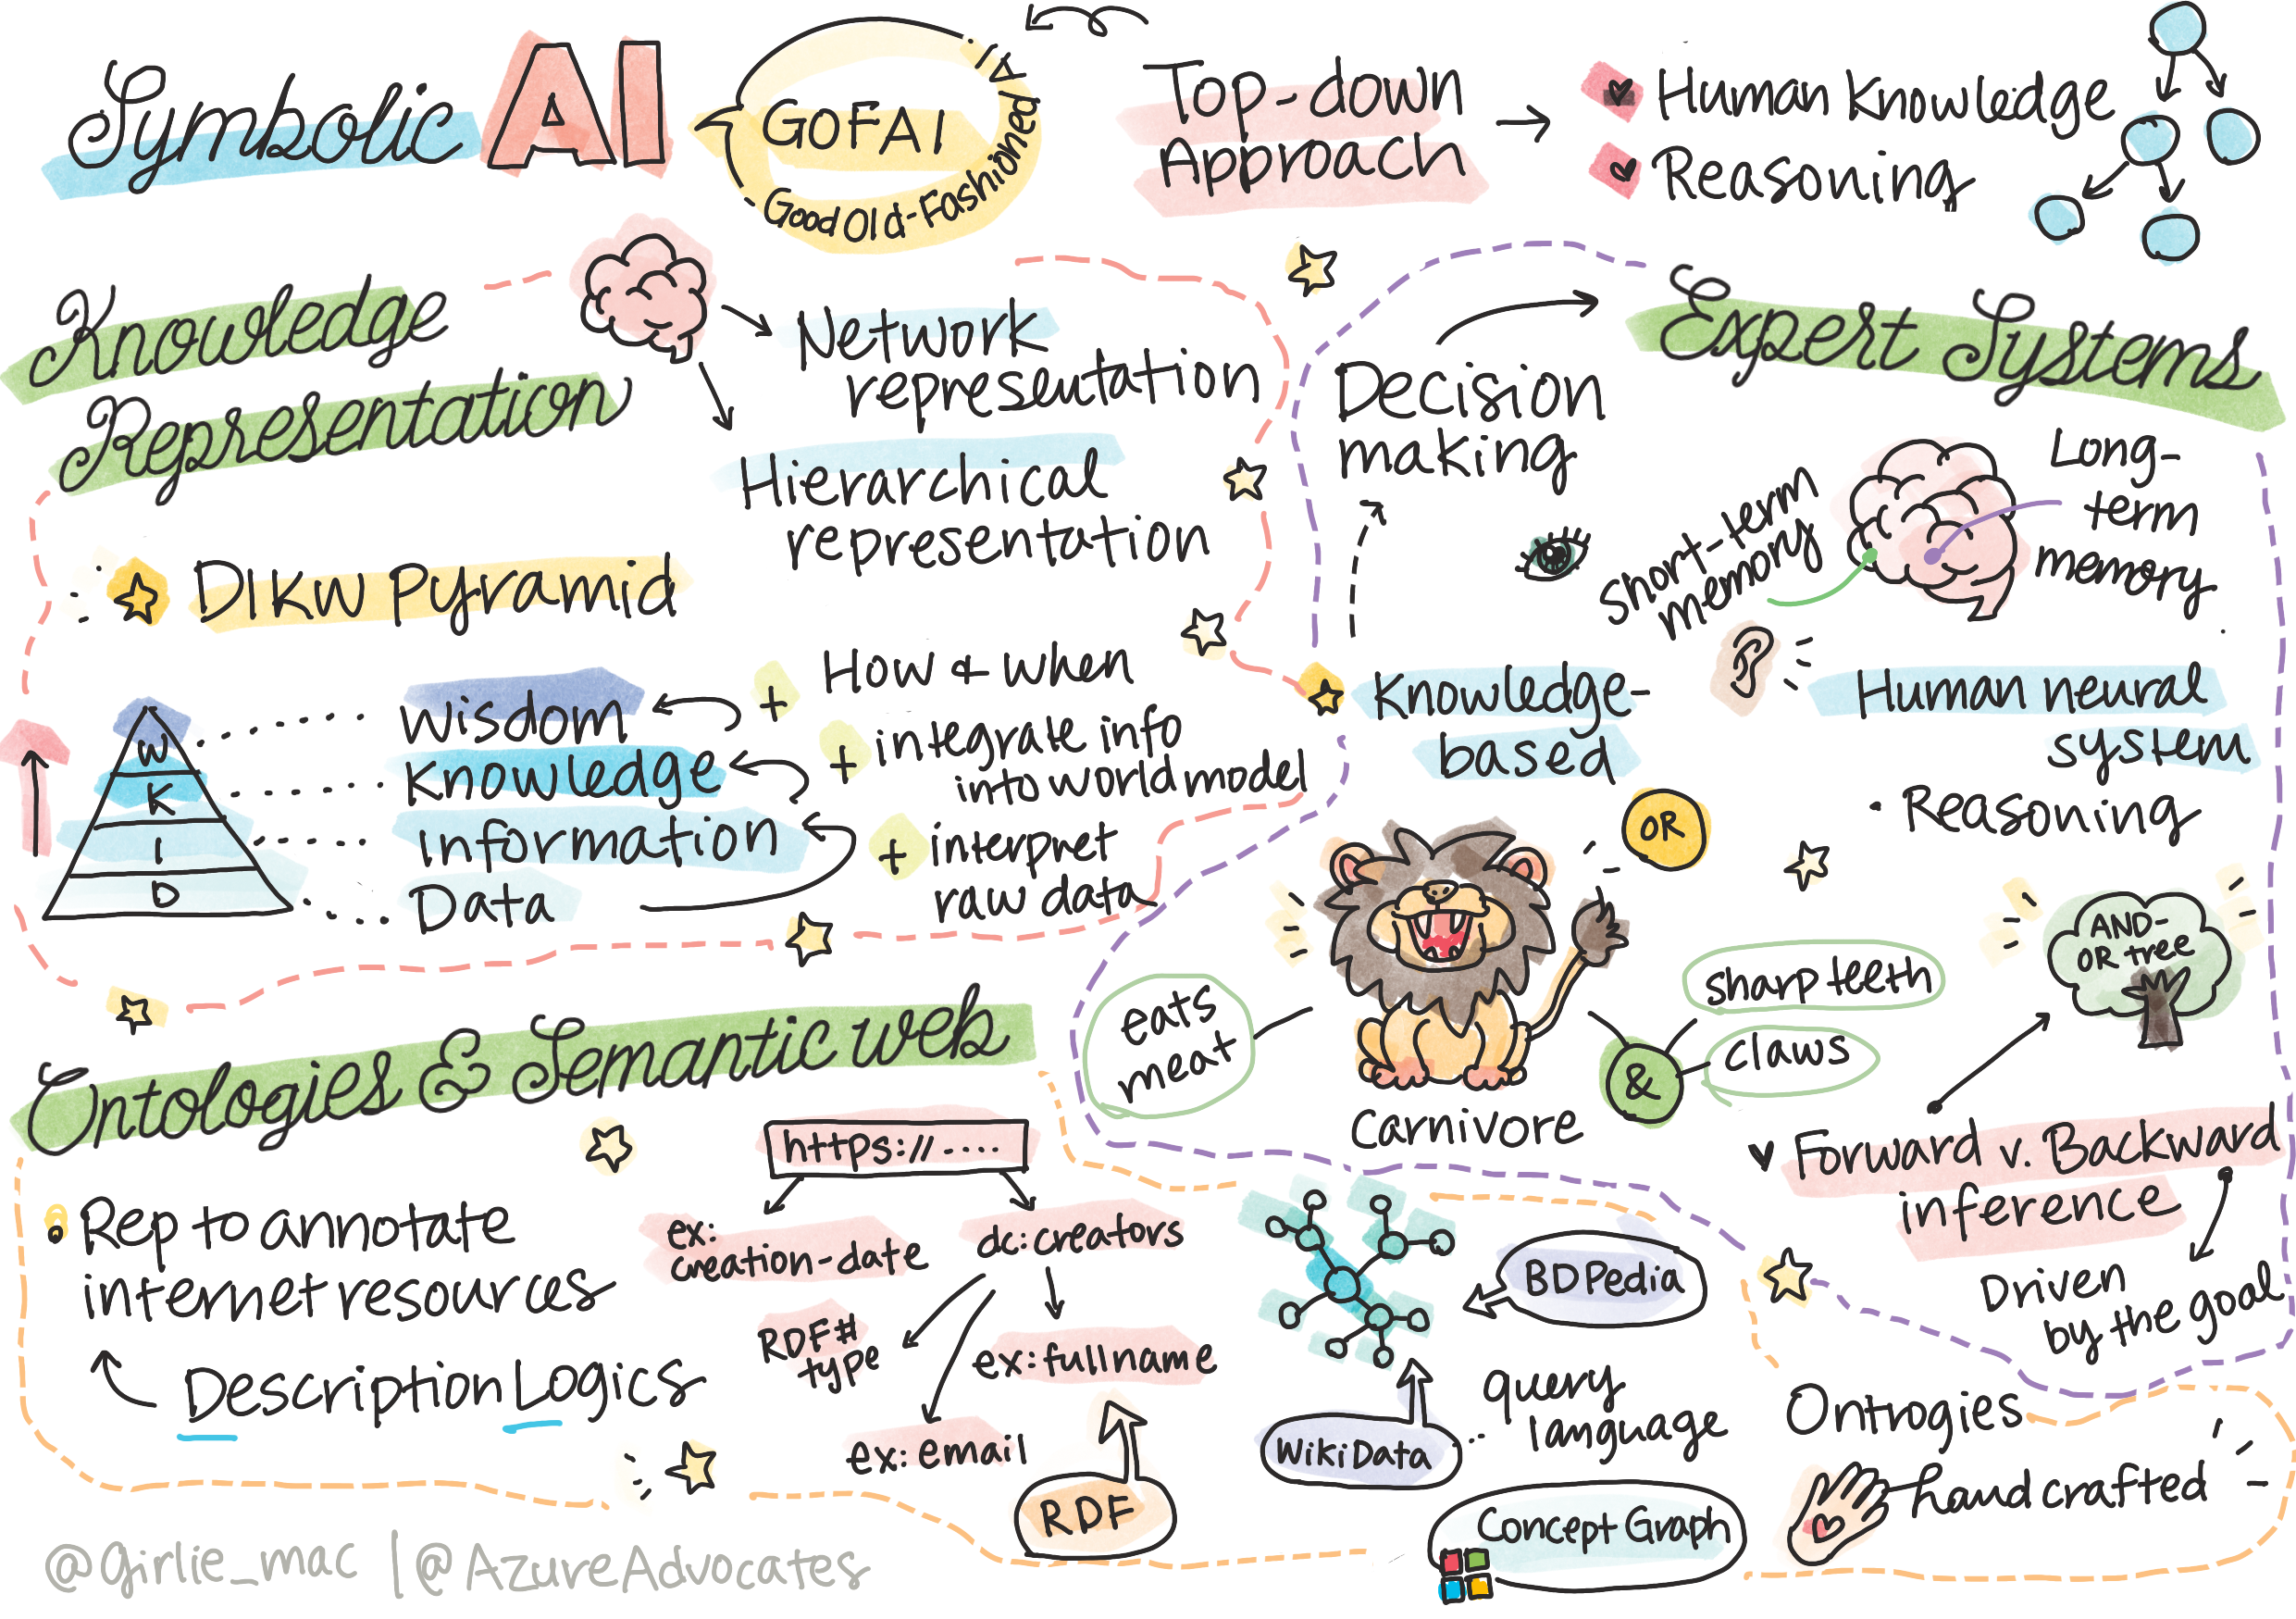 Symbolic AI
GOFAI
Good Old-Fashioned AI
Top-down
Approach
Human Knowledge
Reasoning
Knowledge
Representation
Network
representation
Hierarchical
representation
DIKW Pyramid
W
K
I
D
Wisdom
Knowledge
Information
Data
+ How & when
+ integrate info
into world model
+ interpret
raw data
Expert Systems
Decision
making
short-term
memory
Long-
term
memory
Knowledge-
based
Human neural
system
• Reasoning
OR
eats
meat
Carnivore
&
sharp teeth
claws
AND-
OR tree
Forward v. Backward
inference
Driven
by the goal
Ontologies & Semantic web
Rep to annotate
internet resources
Description Logics
https://....
ex:
creation-date
dc:creators
RDF#
type
ex:fullname
ex:email
RDF
BDPedia
WikiData
query
language
Concept Graph
Ontrogies
handcrafted
@girlie_mac | @AzureAdvocates